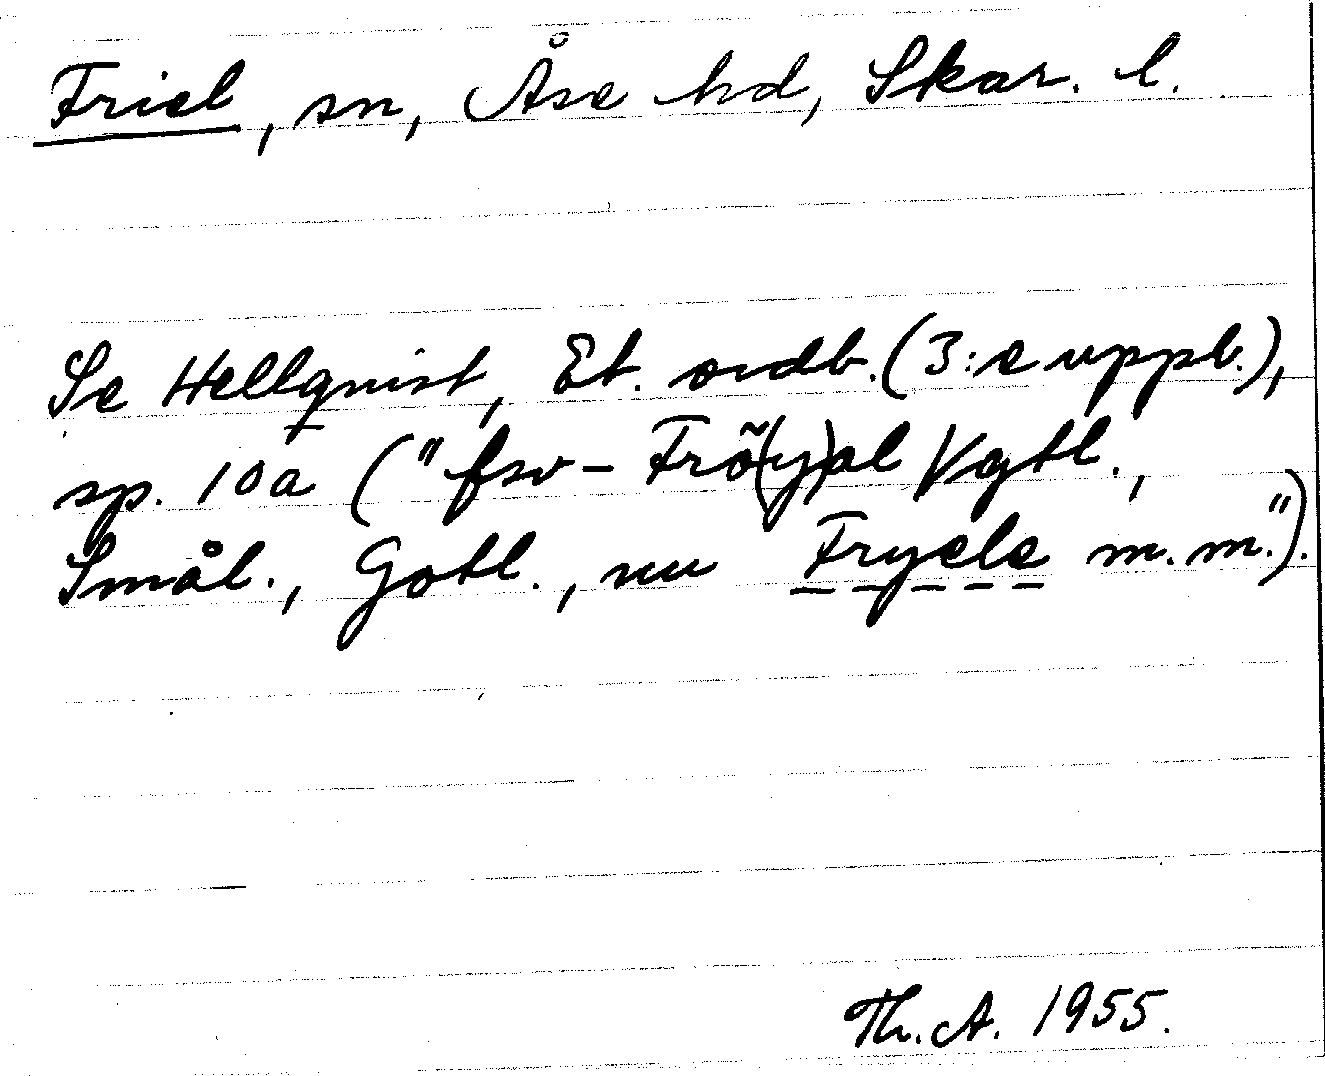 Friel, sn, Åse hd, Skar. l.
Se Hellquist, Et. ordb. (3:e uppl.),
sp. 10a ("fsv – Frö(y)al Vgtl.,
Smål., Gotl., nu Fryele m.m.").
Th. A. 1955.